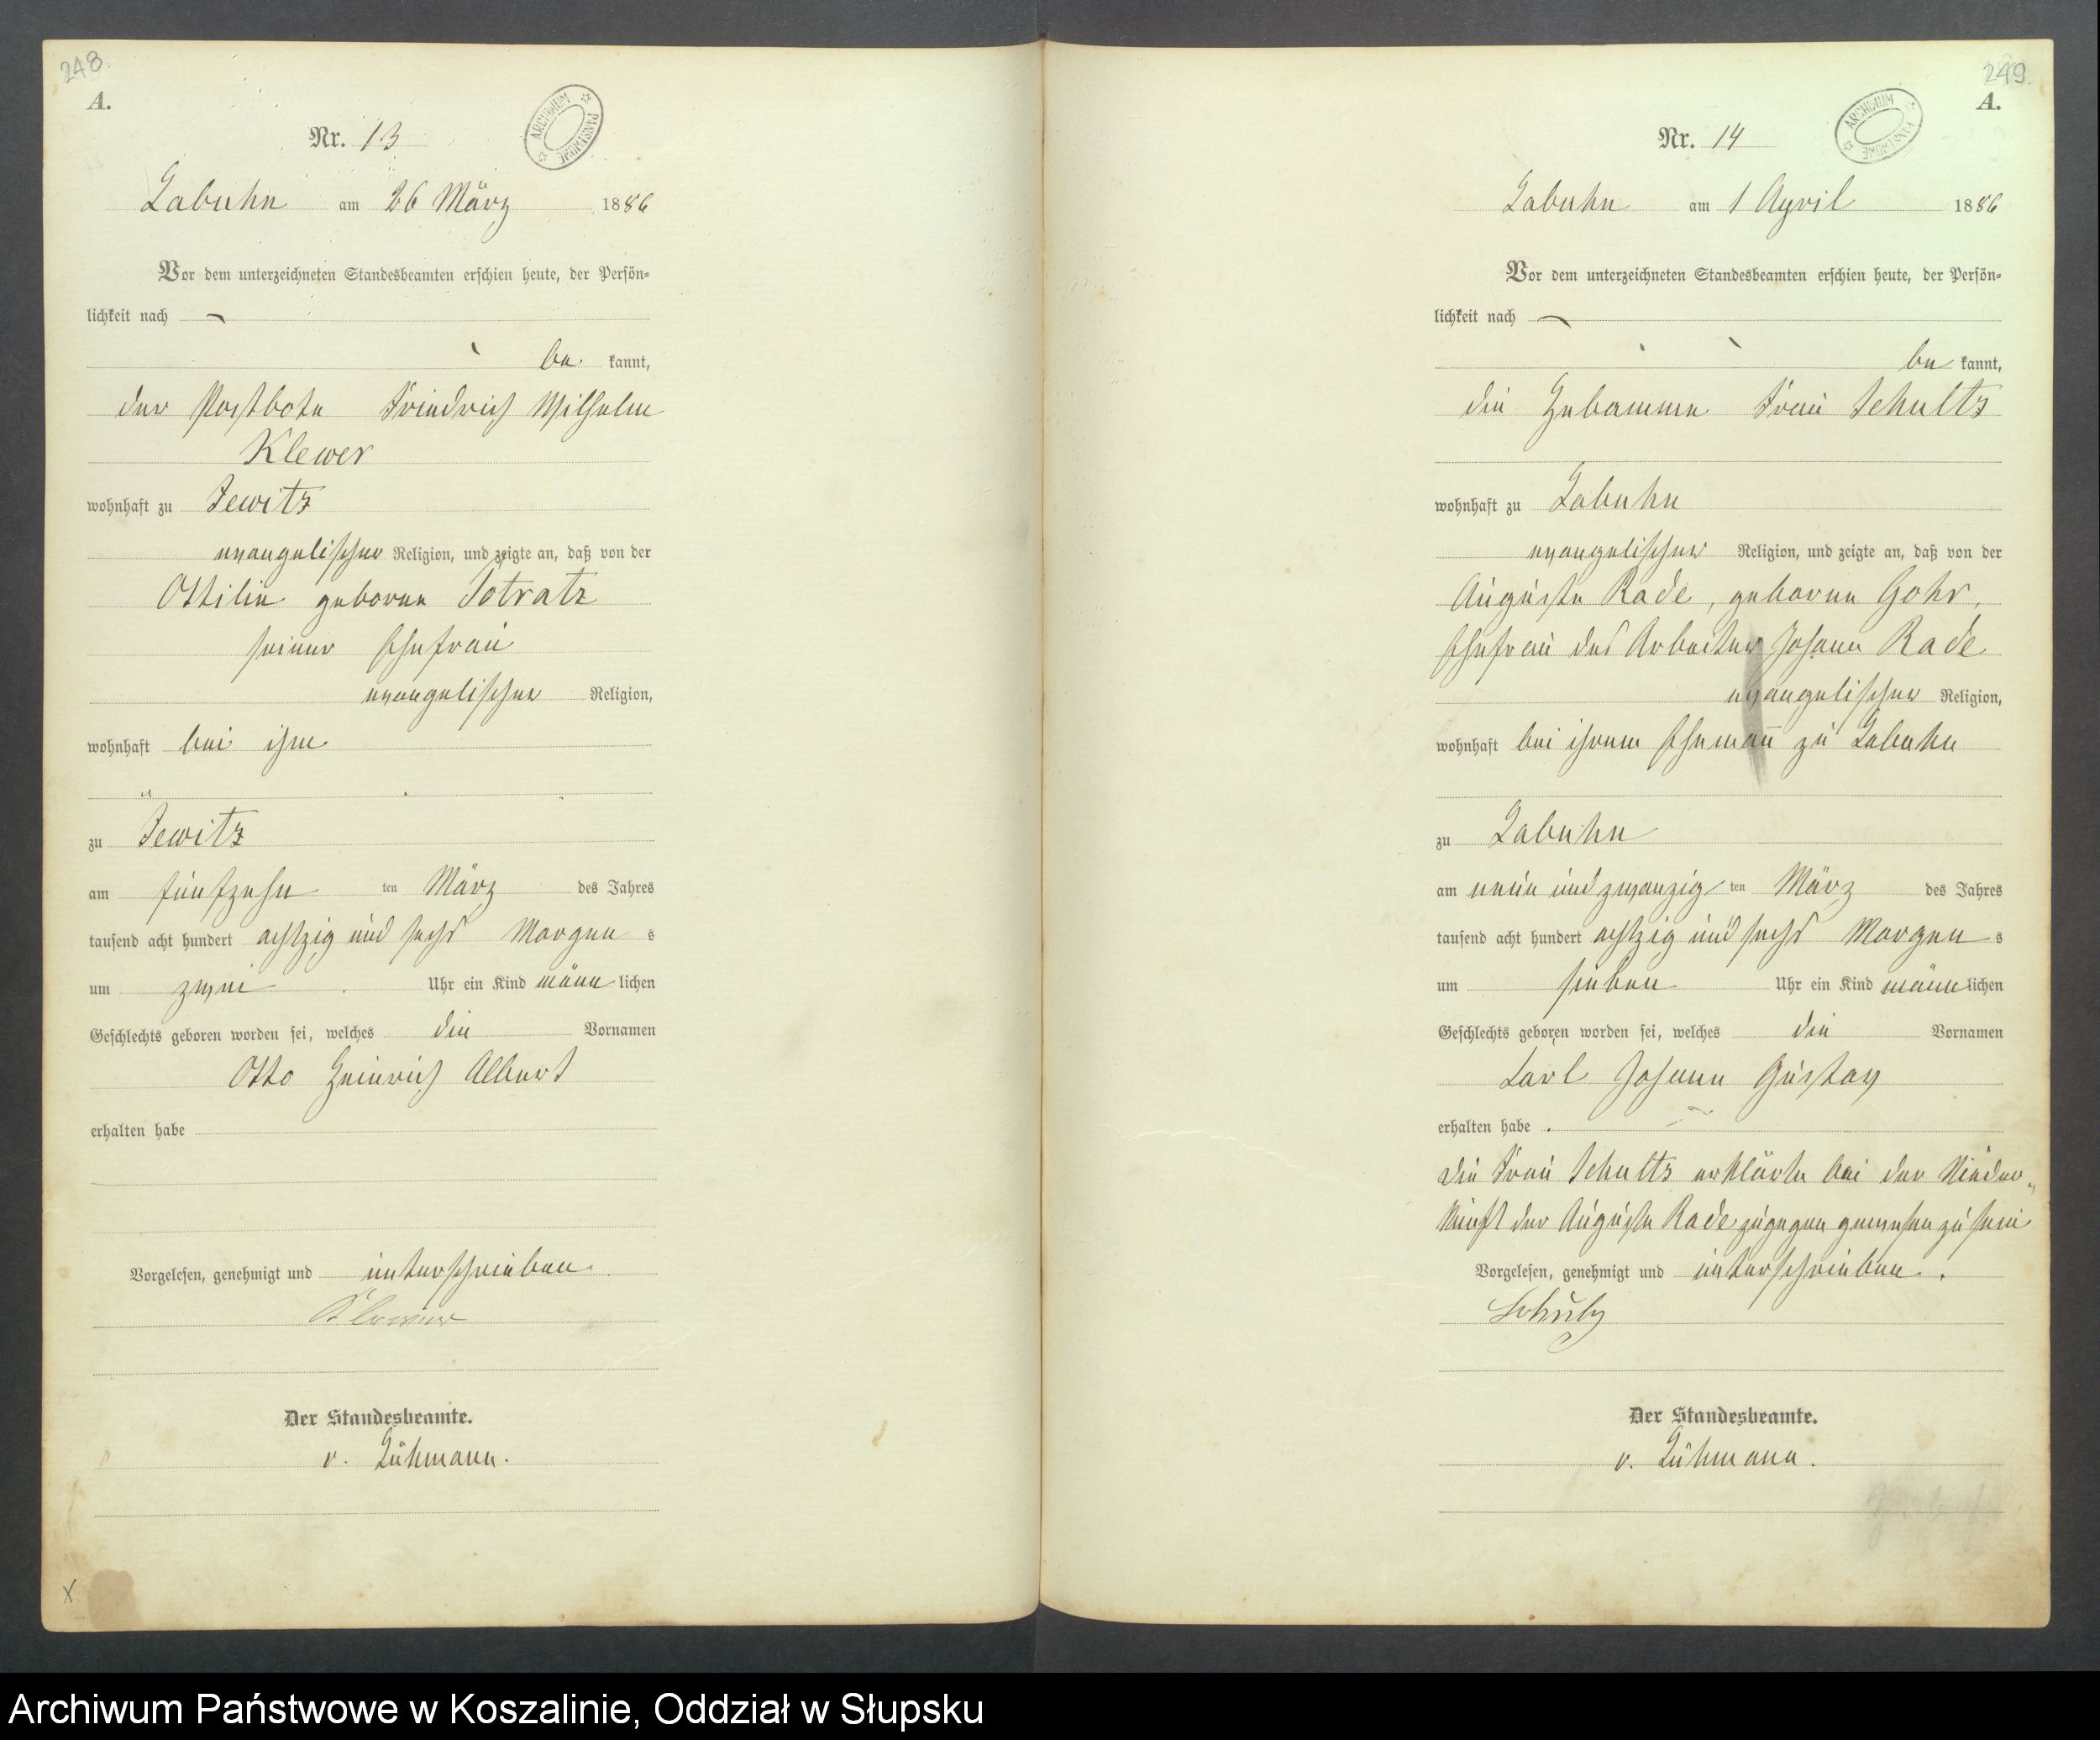 248.
A.
Nr. 13
ARCHIWUM PAŃSTWOWE
Labuhn am 26 März 1886
Vor dem unterzeichneten Standesbeamten erschien heute, der Persön=
lichkeit nach
be kannt,
der Postbote Friedrich Wilhelm
Klewer
wohnhaft zu Jewitz
evangelischer Religion, und zeigte an, daß von der
Ottilie geborene Potratz
seiner Ehefrau
evangelischer Religion,
wohnhaft bei ihm
zu Jewitz
am fünfzehn ten März des Jahres
tausend acht hundert achtzig und sechs Morgen s
um zwei Uhr ein Kind männ lichen
Geschlechts geboren worden sei, welches die Vornamen
Otto Heinrich Albert
erhalten habe
Vorgelesen, genehmigt und unterschrieben.
Klewer
Der Standesbeamte.
v. Lühmann.
X
249.
A.
Nr. 14
ARCHIWUM PAŃSTWOWE
Labuhn am 1 April 1886
Vor dem unterzeichneten Standesbeamten erschien heute, der Persön=
lichkeit nach
be kannt,
die Hebamme Frau Schultz
wohnhaft zu Labuhn
evangelischer Religion, und zeigte an, daß von der
Auguste Rade, geborene Gohr,
Ehefrau des Arbeiter Johann Rade
evangelischer Religion,
wohnhaft bei ihrem Ehemañ zu Labuhn
zu Labuhn
am neun und zwanzig ten März des Jahres
tausend acht hundert achtzig und sechs Morgen s
um sieben Uhr ein Kind männ lichen
Geschlechts geboren worden sei, welches die Vornamen
Carl Johann Gustav
erhalten habe.
Die Frau Schultz erklärte bei der Nieder„
kunft der Auguste Rade zugegen gewesen zu sein
Vorgelesen, genehmigt und unterschrieben.
Schulz
Der Standesbeamte.
v. Lühmann.
Archiwum Państwowe w Koszalinie, Oddział w Słupsku